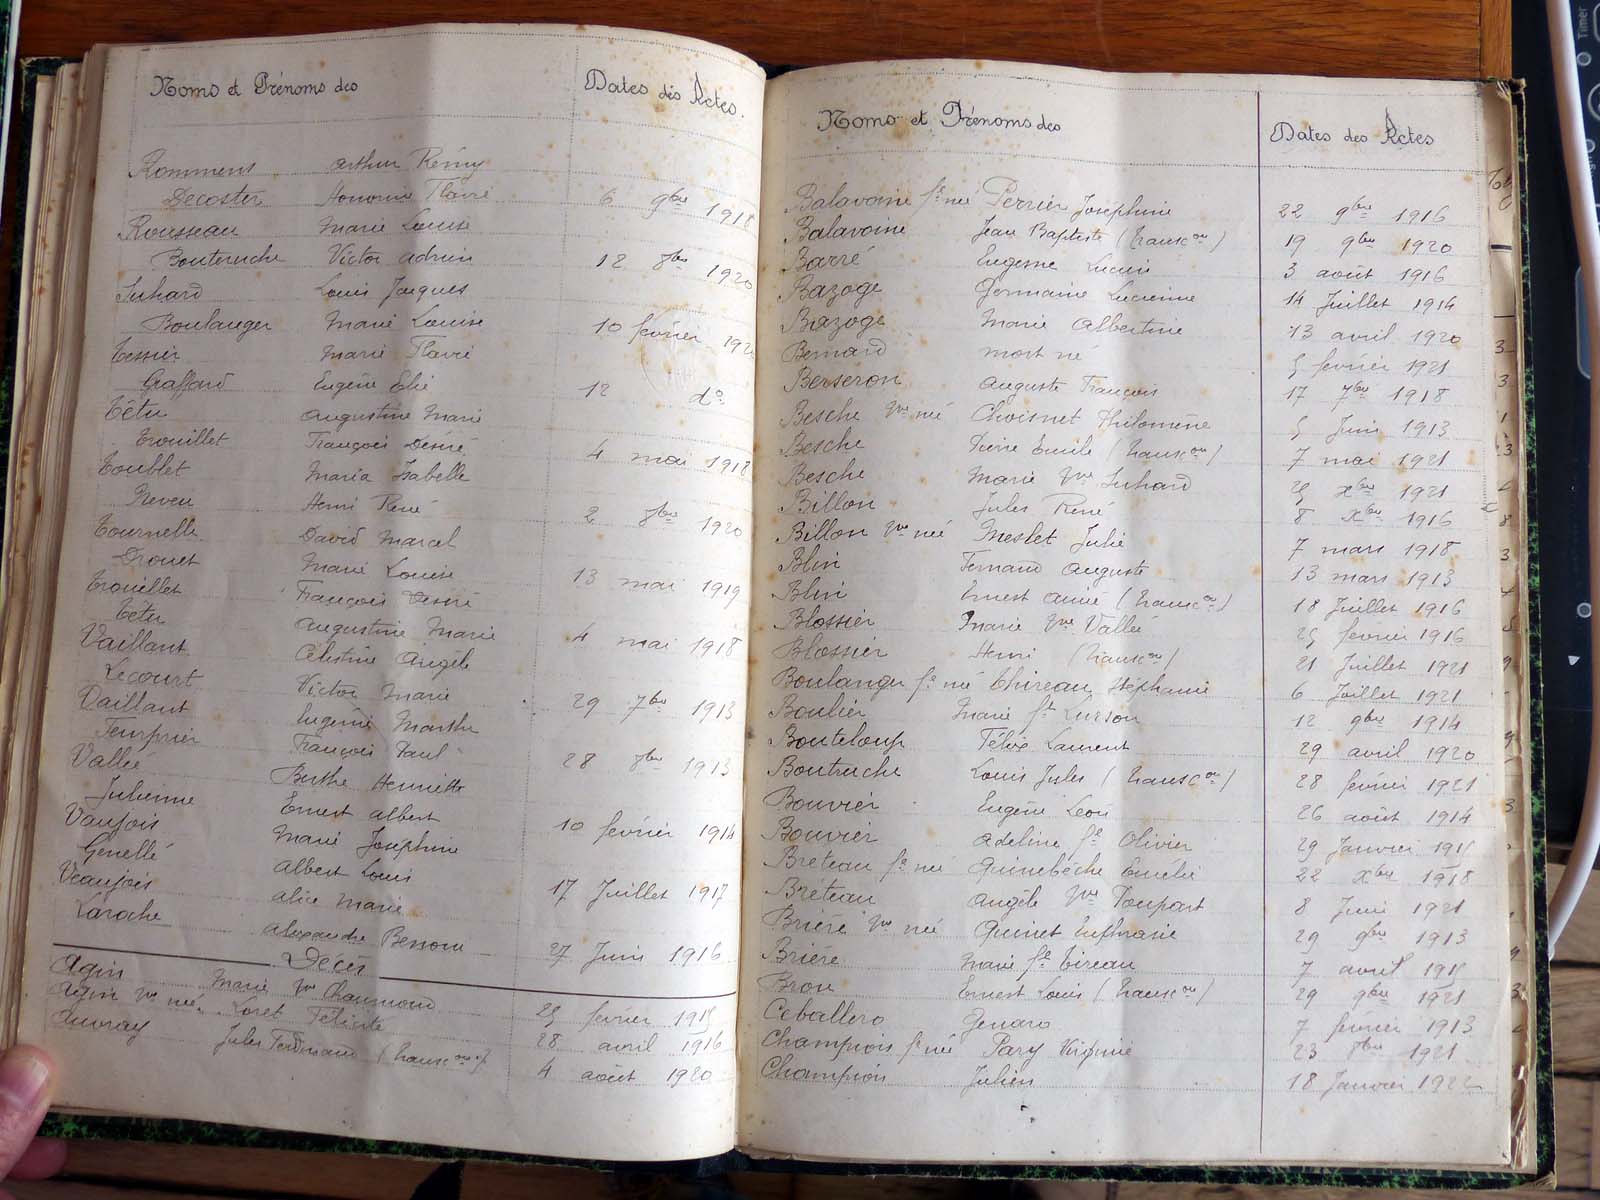 Noms et Prénoms des Dates des Actes.
Rommens arthur Rémy
Decoster Honorine Flavie 6 9bre 1918
Rousseau Marie Louise
Bouteruche Victor adrien 12 8bre 1920
Suhard Louis Jacques
Boulanger Marie Louise 10 février
Tessier Marie Flavie
Graffard Eugène Elie 12 do
Têtu Augustine Marie
Trouillet François Désiré 4 mai 1918
Toublet Maria Isabelle
Neveu Henri René 2 8bre 1920
Tournelle David Marcel
Drouet Marie Louise 13 mai 1919
Trouillet François Désiré
Tetu Augustine Marie 4 mai 1918
Vaillant Célestine Angèle
Lecourt Victor Marie 29 7bre 1913
Vaillant Eugénie Marthe
François Paul 28 8bre 1913
Vallée Berthe Henriette
Julienne Ernest albert 10 février 1914
Vaujois Marie Joséphine
Genellé Albert Louis 17 Juillet 1917
Veaujois alice Marie
Laroche alexandre 27 Juin 1916
Décès
Agin Marie Vve Chaumond 25 février 1915
Agin Vve née Loret Félicité 28 avril 1916
Auvray Jules Ferdinand (transcon) 4 août 1920
Noms et Prénoms des Dates des Actes
Balavoine fe née Perrier Joséphine 22 9bre 1916
Balavoine Jean Baptiste (transcon) 19 9bre 1920
Barré Eugène Lucien 3 août 1916
Bazoge Germaine Lucienne 14 Juillet 1914
Bazoge Marie Albertine 13 avril 1920
Bernard mort né 5 février 1921
Berseron Auguste François 17 7bre 1918
Besche Vve née Choisnet Philomène 5 Juin 1913
Besche Pierre Emile (transcon) 7 mai 1921
Besche Marie Vve Suhard 25 xbre 1921
Billon Jules René 8 xbre 1916
Billon Vve née Meslet Julie 7 mars 1918
Blin Fernand Auguste 13 mars 1913
Blin Ernest aimé (transcon) 18 Juillet 1916
Blossier Marie Vve Vallée 25 février 1916
Blossier Henri (transcon) 21 Juillet 1921
Boulanger fe née Thireau Stéphanie 6 Juillet 1921
Boulier Marie fe Lusson 12 9bre 1914
Bouteloup Félix Laurent 29 avril 1920
Boutruche Louis Jules (transcon) 28 février 1921
Bouvier Eugène Léon 26 août 1914
Bouvier Adeline fe Olivier 29 Janvier 1915
Breteau fe née Guimbéche Emélie 22 xbre 1918
Breteau Angèle Vve Poupart 8 Juin 1921
Brière Vve née Quinet Euphrasie 29 9bre 1913
Brière Marie fe Tireau 7 avril 1915
Bron Ernest Louis (transcon) 29 9bre 1921
Ceballero Genaro 7 février 1913
Champion fe née Pary Virginie 23 8bre 1921
Champion Julien 18 Janvier 1922